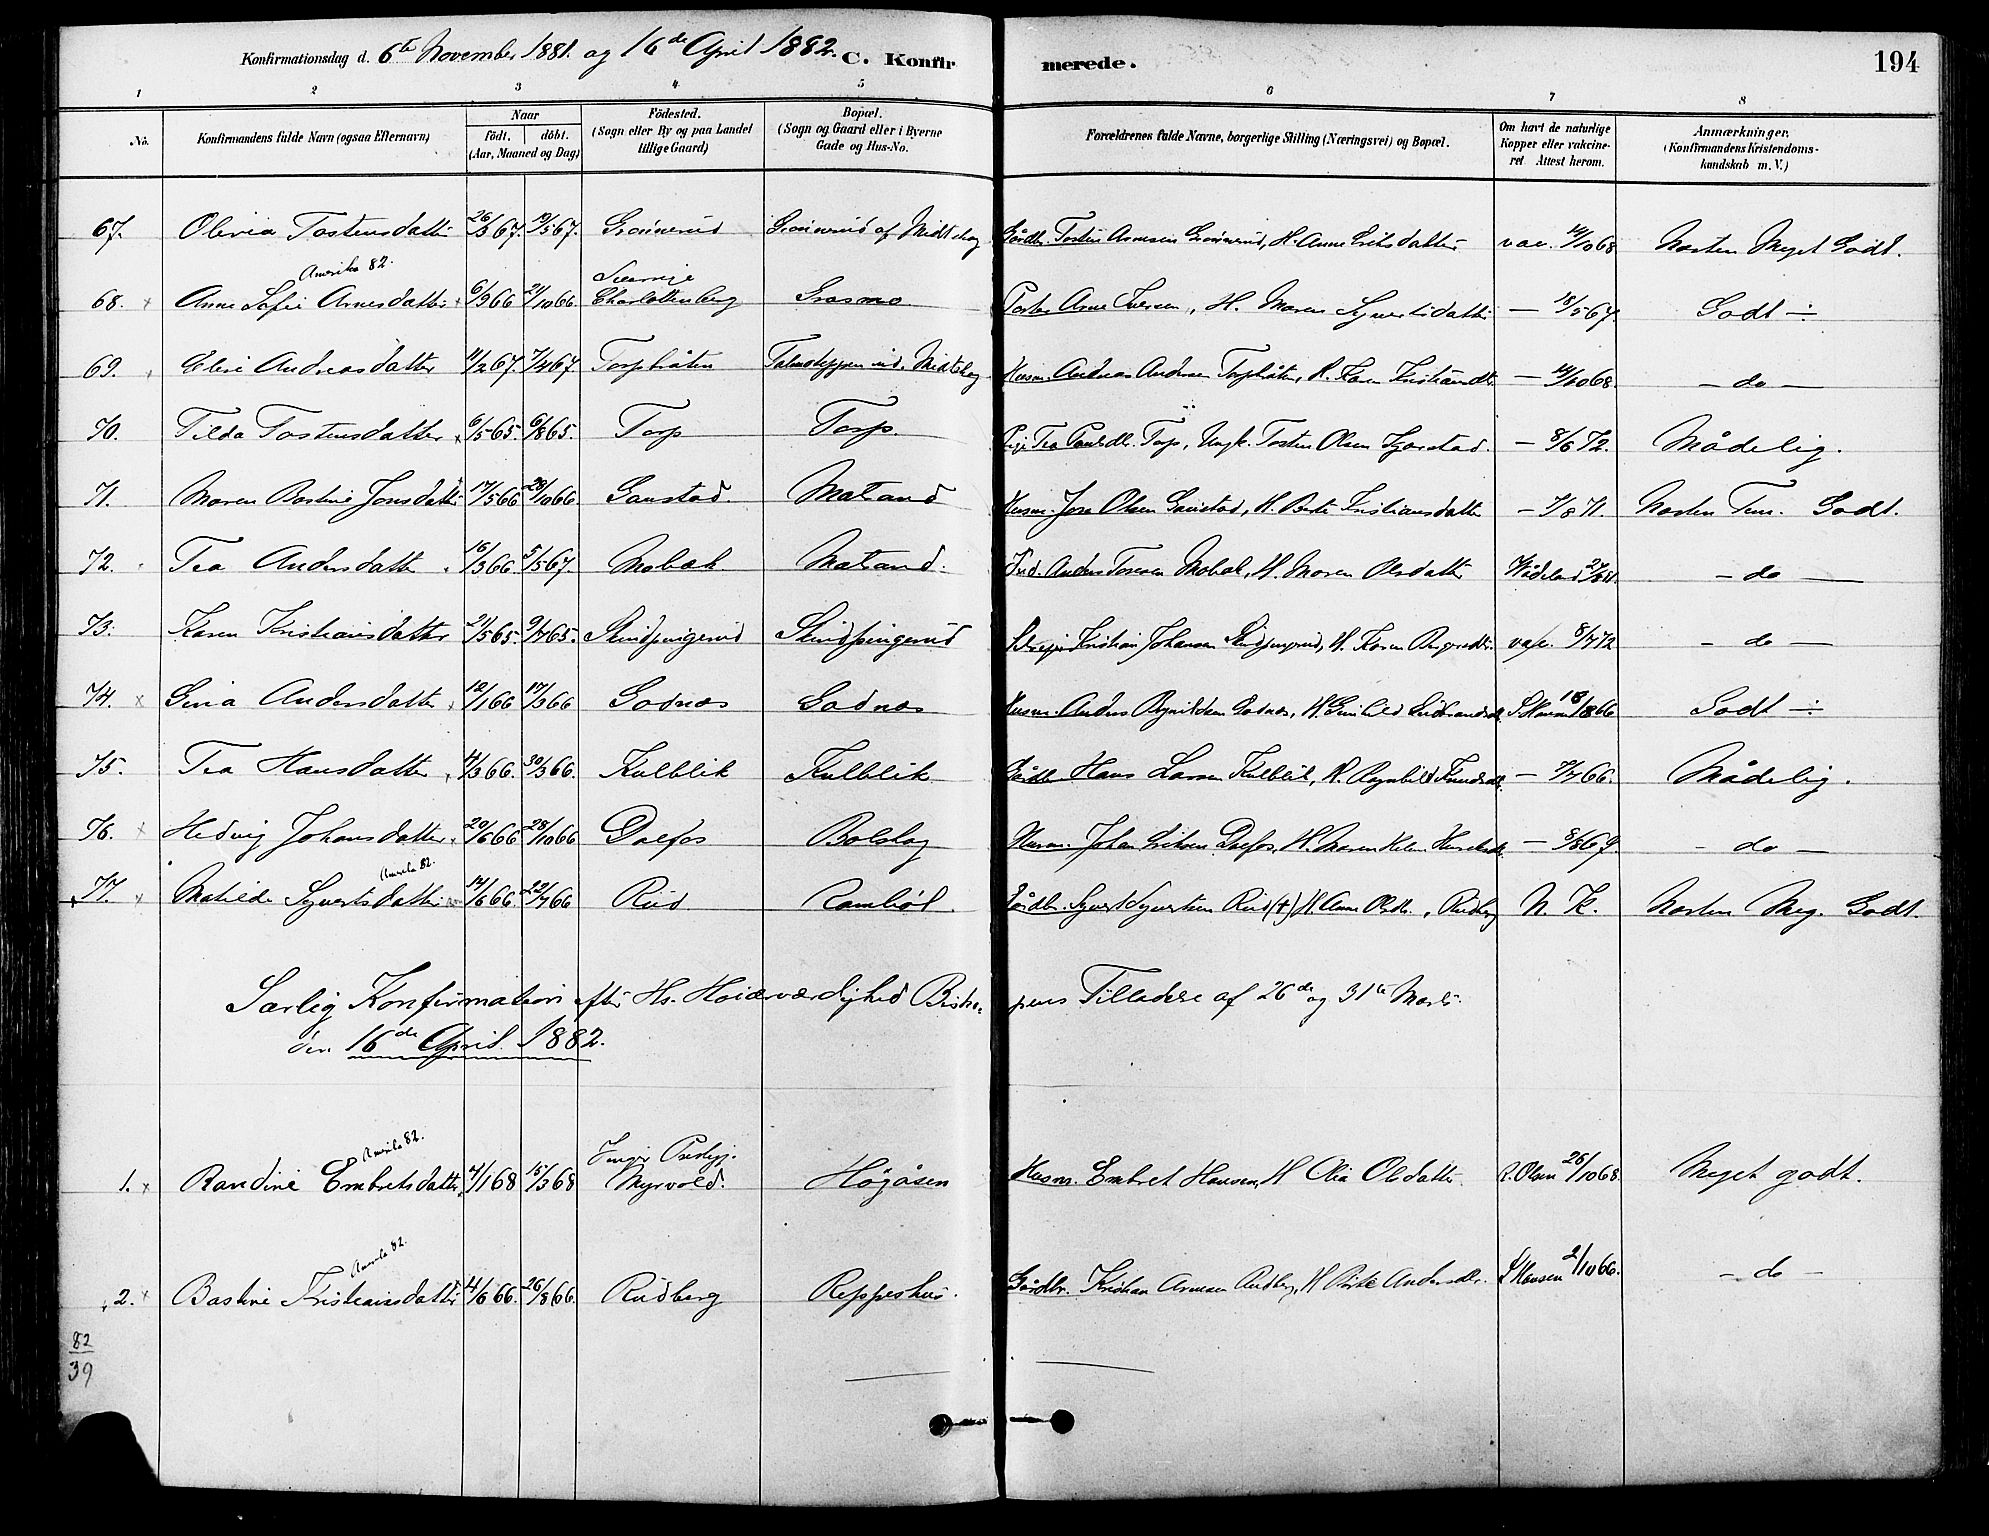 Konfirmationsdag d. 6te November 1881. og 16de April 1882. C. Konfirmerede. 194
1 2 3 4 5 6 7 8
No. Konfirmandens fulde Navn (ogsaa Efternavn) Naar födt. döbt. (Aar, Maaned og Dag) Födested. (Sogn eller By og paa Landet tillige Gaard) Bopæl. (Sogn og Gaard eller i Byerne Gade og Hus-No. Forældrenes fulde Navne, borgerlige Stilling (Næringsvei) og Bopæl. Om havt de naturlige Kopper eller vakcineret Attest herom. Anmærkninger. (Konfirmandens Kristendomskundskab m. V.)
67. Olivia Tostensdatter 26/3 67. 19/5 67. Grönnerud Grönnerud af Midtskog Gårdbr. Tosten Arnesen Grönnerud, H. Anne Eriksdatter vac. 14/10 68 Næsten Meget Godt.
Amerika 82.
68. Anne Sofie Arnesdatter 6/9 66 21/10 66. Charlottenberg Grasmo Arne Iversen, H. Maren Syvertsdatter — 18/5 67. Godt ÷
69. Eline Andreasdatter 11/2 67. 7/4 67. Torpbråten Midtskog Husm. Andreas Andersen Torpbråten, H. Karen Kristiansdt. — 14/10 68. — do —
70. Tilda Tostensdatter 6/5 65. 6/8 65. Torp Torp. Pige Tea Paulsdt. Torp, Ungk. Tosten Olsen — 8/6 72. Mådelig.
71. Maren Bastine Jonsdatter 17/5 66 28/10 66. Gaustad. Matand Husm. Jon Olsen Gaustad, H. Berte Kristiansdatter — 7/8 71. Næsten Tem. Godt.
72. Tea Andersdatter 16/3 66. 5/5 67. Mobæk Matand. Ind. Anders Mobæk, H. Maren Olsdatter — do —
73. Karen Kristiansdatter 21/5 65. 9/7 65. Skindpungerud Skindpungerud Kristian Johansen Skindpungerud, H. Karen vac. 8/7 72 — do —
74. Gina Andersdatter 12/1 66 17/3 66 Godnæs Godnæs Husm. Anders Godnæs, H. Gunhild S. Hansen 18/8 66 Godt ÷
75. Tea Hansdatter 4/3 66. 30/3 66. Kulblik Kulblik Gårdbr. Hans Larsen Kulblik, H. Ragnhild Knudsdt. — 7/7 66. Mådelig.
76. Hedvig Johansdatter 20/6 66 28/10 66 Dalfos Bolskog Husm. Johan Eriksen Dalfos, H. Maren Helen — 8/8 67. — do —
Amerika 82.
77. Matilde Syvertsdatter 14/6 66. 22/7 66 Rud Rambøl. Gårdbr. Syvert Syvertsen Rud (†) H. Anne Olsdt., Rudberg N. K. Næsten Meg. Godt.
Særlig Konfirmation efter Hs. Höiærværdighed Biskopens Tilladelse af 26de og 31te Marts
den 16de April 1882.
Amerika 82.
1. Randine Embretsdatter 4/1 68 15/3 68 Præstgj. Myrvold. Högåsen Husm. Embret Hansen, H. Olia Olsdatter. R. Olsen 26/10 68. Meget godt.
Amerika 82.
2. Bastine Kristiansdatter 4/6 66. 26/8 66. Rudberg Reppeshus. Gårdbr. Kristian Arnesen Rudberg, H. Berte Andersdt. S. Hansen 2/10 66. — do —
82
39